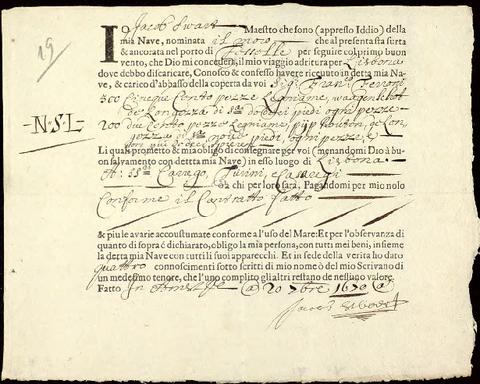 19
IO Jacob Swart Maestro che sono (appresso Iddio) della
mia Nave, nominata il moro che al presente sta surta
& ancorata nel porto di Tessele per seguire col primo buon
vento, che Dio mi concederà, il mio viaggio adritura per Lisbona
dove debbo discaricare, Conosco & confesso havere riceuuto in detta mia Na-
ve, & carico d'abbasso della coperta da voi Sigr Fran: Feroni
500 Cinque Cento pezze Legniame, wagenschot
de Longezza di dodeci piedi ogni pezze
200 due Cento pezze Legniame, pijphouten, de Lon-
gezza di piedi, ogni pezze, e
-N.S.L-
Li quali prometto & mia obligo di consegnare per voi (menandomi Dio à bu-
on salvamento con dettta mia Nave) in esso luogo di Lisbona
Carrego, Turini, e
ò a chi per loro sarà, Pagandomi per mio nolo
Conforme il Contratto fatto
& piu le avarie accoustumate conforme a l'uso del Mare: Et per l'observanza di
quanto di sopra é dichiarato, obligo la mia persona, con tutti mei beni, insieme
la detta mia Nave con tutti li suoi apparecchi. Et in fede della verita ho dato
quattro connoscimenti sotto scritti di mio nome ò del mio Scrivano di
un medesimo tenore, che l'uno complito gli altri restano de nessuno valore.
Fatto In Amst 20 7bre 1670
Jacob